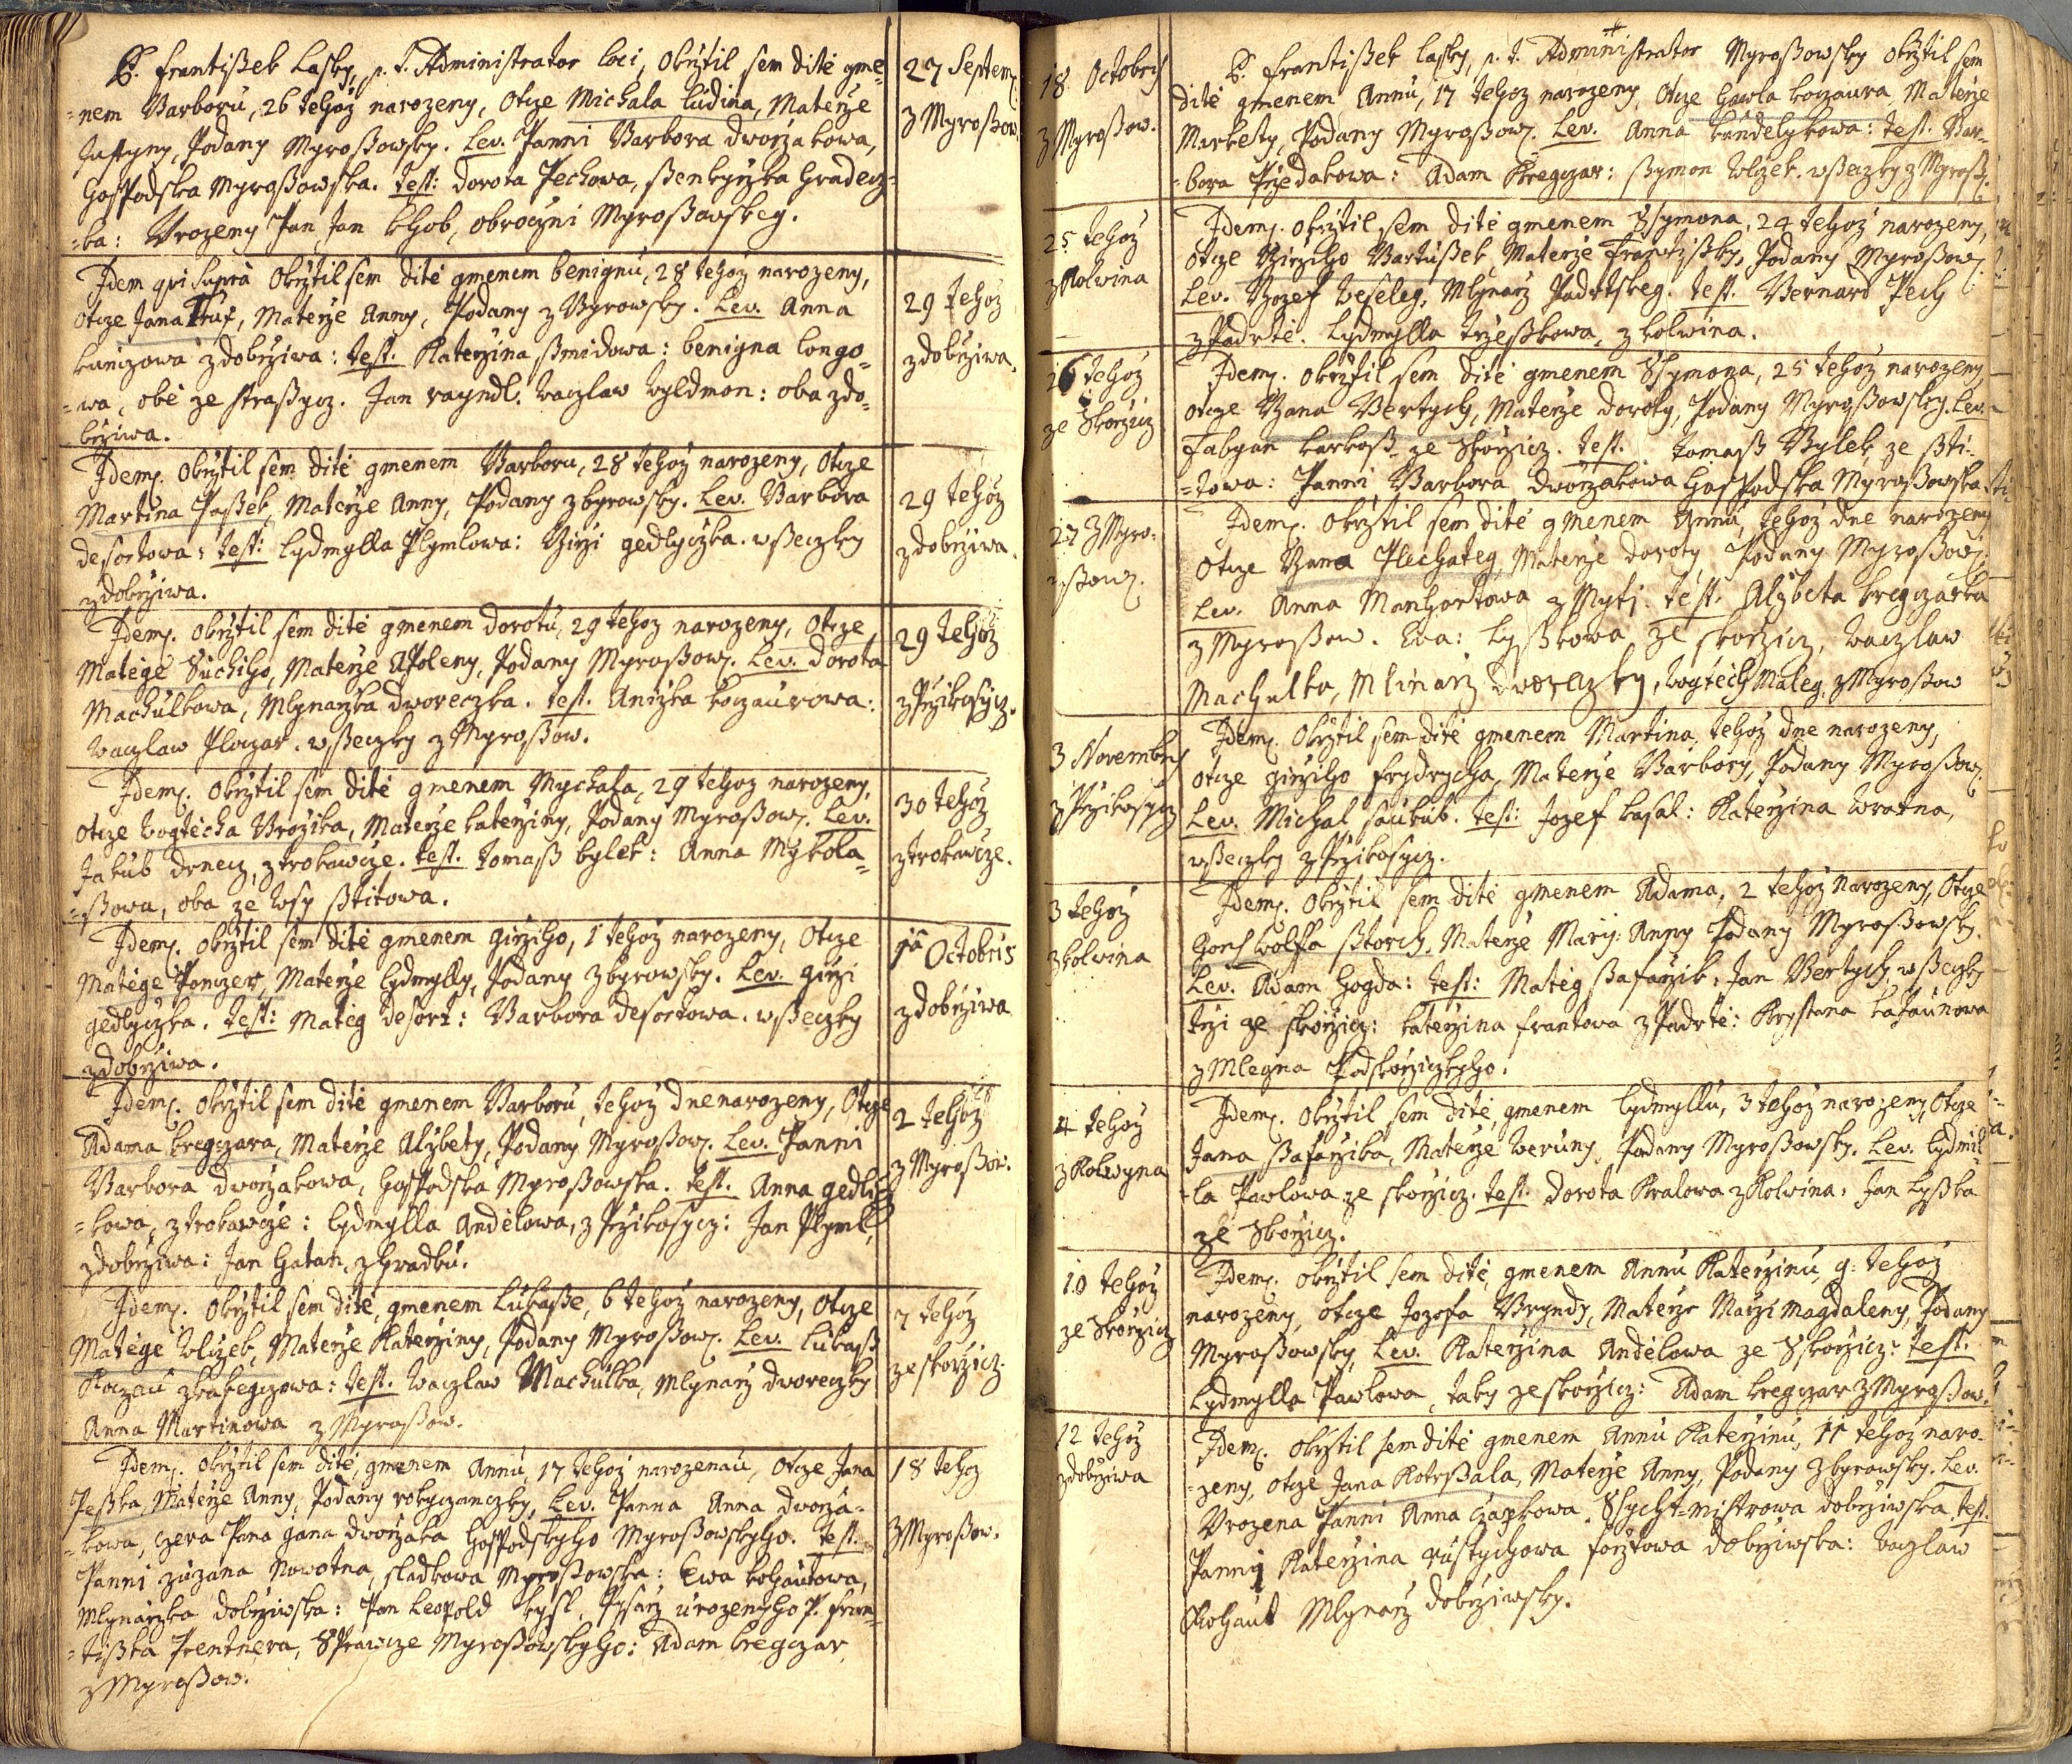 P. Frantißek Lasky, p. t. Administrator loci, Okrztil sem dité gme-
=nem Barboru, 26 tehoż narozeny, Otcze Michala Ludina, Materże
Justyny, Podany Myroßowsky. Lev. Panni Barbora dworżakowa,
Hospodska Myroßowska. test: Dorota Pechowa, ßenkyrżka Hradecz-
=ka: Urozeny Pan, Jan Chob, obrocżni Myroßowskeg.
27 Septem.
z Myroßow.
Idem qui supra Okrztil sem dité gmenem benignu, 28 tehoż narozeny,
Otcze Jana Truf, Materże Anny, Podany z Byrowsky. Lev. Anna
z dobrżiwa: test. Katerżina ßmidowa: benigna longo-
=wa, obé ze straßycz. Jan rayndl. Waczlaw wyldmon: oba z do-
brżiwa.
29 tehoż
z dobrżiwa.
Idem. Okrztil sem dité gmenem Barboru, 28 tehoż narozeny, Otcze
Martina Paßek, Materże Anny, Podany zbyrowsky. Lev. Barbora
desortowa: test: Lydmylla Plymlowa: Girżi gedlyczka. wßeczky
z dobrżiwa.
29 tehoż
z dobrżiwa.
Idem. Okrztil sem dité gmenem Dorotu, 29 tehoż narozeny, Otcze
Matége Suchiho, Materże Apoleny, Podany Myroßow. Lev. Dorota
Machulkowa, Mlynarżka dworeczka. test. Anieżka koczaurowa:
Waczlaw Ploczar. wßeczky z Myroßow.
29 tehoż
z Prżikosycz.
Idem. Okrztil sem dité gmenem Mychala, 29 tehoż narozeny,
Otcze Wogtécha Brożika, Materże Katerżiny, Podany Myroßow. Lev.
Jakub drnecz, z trokawcze. test. Tomaß bylek: Anna Mykola-
=ßowa, oba ze Wsy ßtitowa.
30 tehoż
z trokawcze.
Idem. Okrztil sem dité gmenem Girżiho, 1 tehoż narozeny, Otcze
Matége Panczer, Materże Lydmylly, Podany zbyrowsky. Lev. Girżi
gedlyczka. test: Matég desort: Barbora desortowa. wßeczky
z dobrżiwa.
1a Octobris
z dobrżiwa
Idem. Okrztil sem dité gmenem Barboru, tehoż dne narozeny, Otcze
Adama kregczara, Materże Alżbety, Podany Myroßow. Lev. Panni
Barbora dworżakowa, Hospodska Myroßowska. test. Anna gedlicż-
=kowa, z trokawcze: Lydmylla Andélowa, z Prżikosycz: Jan Plyml,
z dobrżiwa: Jan Hatan, z Hradku.
2 tehoż
z Myroßow.
Idem. Okrztil sem dité, gmenem Lukaße, 6 tehoż narozeny, Otcze
Matége Wlczek, Materże Katerżiny, Podany Myroßow. Lev. Lukaß
Koczau z kakegczowa: test. Waczlaw Machulka, Mlynarż dworeczky
Anna Martinowa z Myroßow.
7 tehoż
ze skorżicz.
Idem. Okrztil sem dité, gmenem Annu, 17 tehoż narozenau, Otcze Jana
Peßka, Materże Anny, Podany rokyczanczky, Lev. Panna Anna dworża-
=kowa, czera Pana Jana dworżaka Hospodskyho Myroßowskyho. test.
Panni zuzana Nowotna, sladkowa Myroßowska: Ewa kohautowa,
Mlynarżka dobrżiwska: Pan Leopold kysl, Pysarż urozenyho P. Fran-
=tißka Prentnera, Sprawcze Myroßowskyho: Adam kregczar
z Myroßow.
18 tehoż
z Myroßow.
18 Octobris
z Myroßow.
P. Frantißek Lasky, p. t. Administrator Myroßowsky Okrztil sem
dité gmenem Annu, 17 tehoż narozeny, Otcze Hawla koczaura, Materże
Markety, Podany Myroßow. Lev. Anna kundelykowa: test. Bar-
=bora Prżedakowa: Adam Kregczar: ßymon Wlczek. wßeczky z Myroß.
25 tehoż
z Kolwina
Idem. Okrztil sem dité gmenem Ssymona, 24 tehoż narozeny,
Otcze Girżiho Bartußek Materże Frantißky, Podany Myroßow.
Lev. Jozef Weseleg, Mlynarż Padrtskeg. test. Bernard Pech
z Padrté. Lydmylla trżeßkowa, z kolwina.
26 tehoż
ze Skorżicz
Idem. Okrztil sem dité gmenem Ssymona, 25 tehoż narozeny
Otcze Jana Bertych, Materże Doroty, Podany Myroßowsky. Lev.
Fabyan karkoß ze Skorżicz. test. Tomaß Bylek ze ßti-
=towa: Panni Barbora dworżakowa Hospodska Myroßowska
27 z Myro-
=ßow.
Idem. Okrztil sem dité gmenem Annu, tehoż dne narozeny
Otcze Jana Plechateg, Materże Doroty, Podany Myroßow.
Lev. Anna Manhartowa z Myti: test. Alżbeta kregczarka
z Myroßow. Ewa: Lyßkowa ze skorżicz, Waczlaw
Machulka, Mlinarż dworeczky, Wogtéch Maleg z Myroßow
3 Novembris
z Prżikosycz
Idem. Okrztil sem dité gmenem Martina, tehoż dne narozeny,
Otcze Girżiho Frydrycha, Materże Barbory, Podany Myroßow.
Lev. Michal saukub. test: Jozef kasal: Katerżina wratna,
wßeczky z Prżikosycz.
3 tehoż
z kolwina
Idem. Okrztil sem dité gmenem Adama, 2 tehoż narozeny, Otcze
Hons Wolffa ßtorch, Materże Marij: Anny Podany Myroßowsky.
Lev. Adam Hogda: test: Matég ßafarżik: Jan Bertych, wßeczky
trżi ze skorżicz: Katerżina Frantowa z Padrté: Krystana kataunowa
z Mlegna Podskorżiczkyho.
4 tehoż
z Kolwyna
Idem. Okrztil sem dité, gmenem Lydmyllu, 3 tehoż narozeny, Otcze
Jana ßafarżika, Materże Weruny, Podany Myroßowsky. Lev. Lydmil-
=la Pawlowa ze skorżicz. test. Dorota Kralowa z Kolwina, Jan Lyßka
ze Skorżicz.
10 tehoż
ze Skorżicz
Idem. Okrztil sem dité, gmenem Annu Katerżinu, 9: tehoż
narozeny, Otcze Jozefa Bryndy, Materże Marżi Magdaleny, Podany
Myroßowsky, Lev. Katerżina Andélowa ze Skorżicz: test.
Lydmylla Pawlowa, taky ze skorżicz: Adam kregczar z Myroßow.
12 tehoż
z dobrżiwa
Idem. Okrztil sem dité gmenem Annu Katerżinu, 11 tehoż naro-
=zeny, Otcze Jana Kotrßala, Materże Anny, Podany Zbyrowsky. Lev.
Urozena Panni Anna czapkowa. Ssycht-mistrowa dobrżiwska, test.
Panny Katerżina rustychowa forżtowa dobrżiwska: Waczlaw
Kohaut Mlynarż dobrżiwsky.